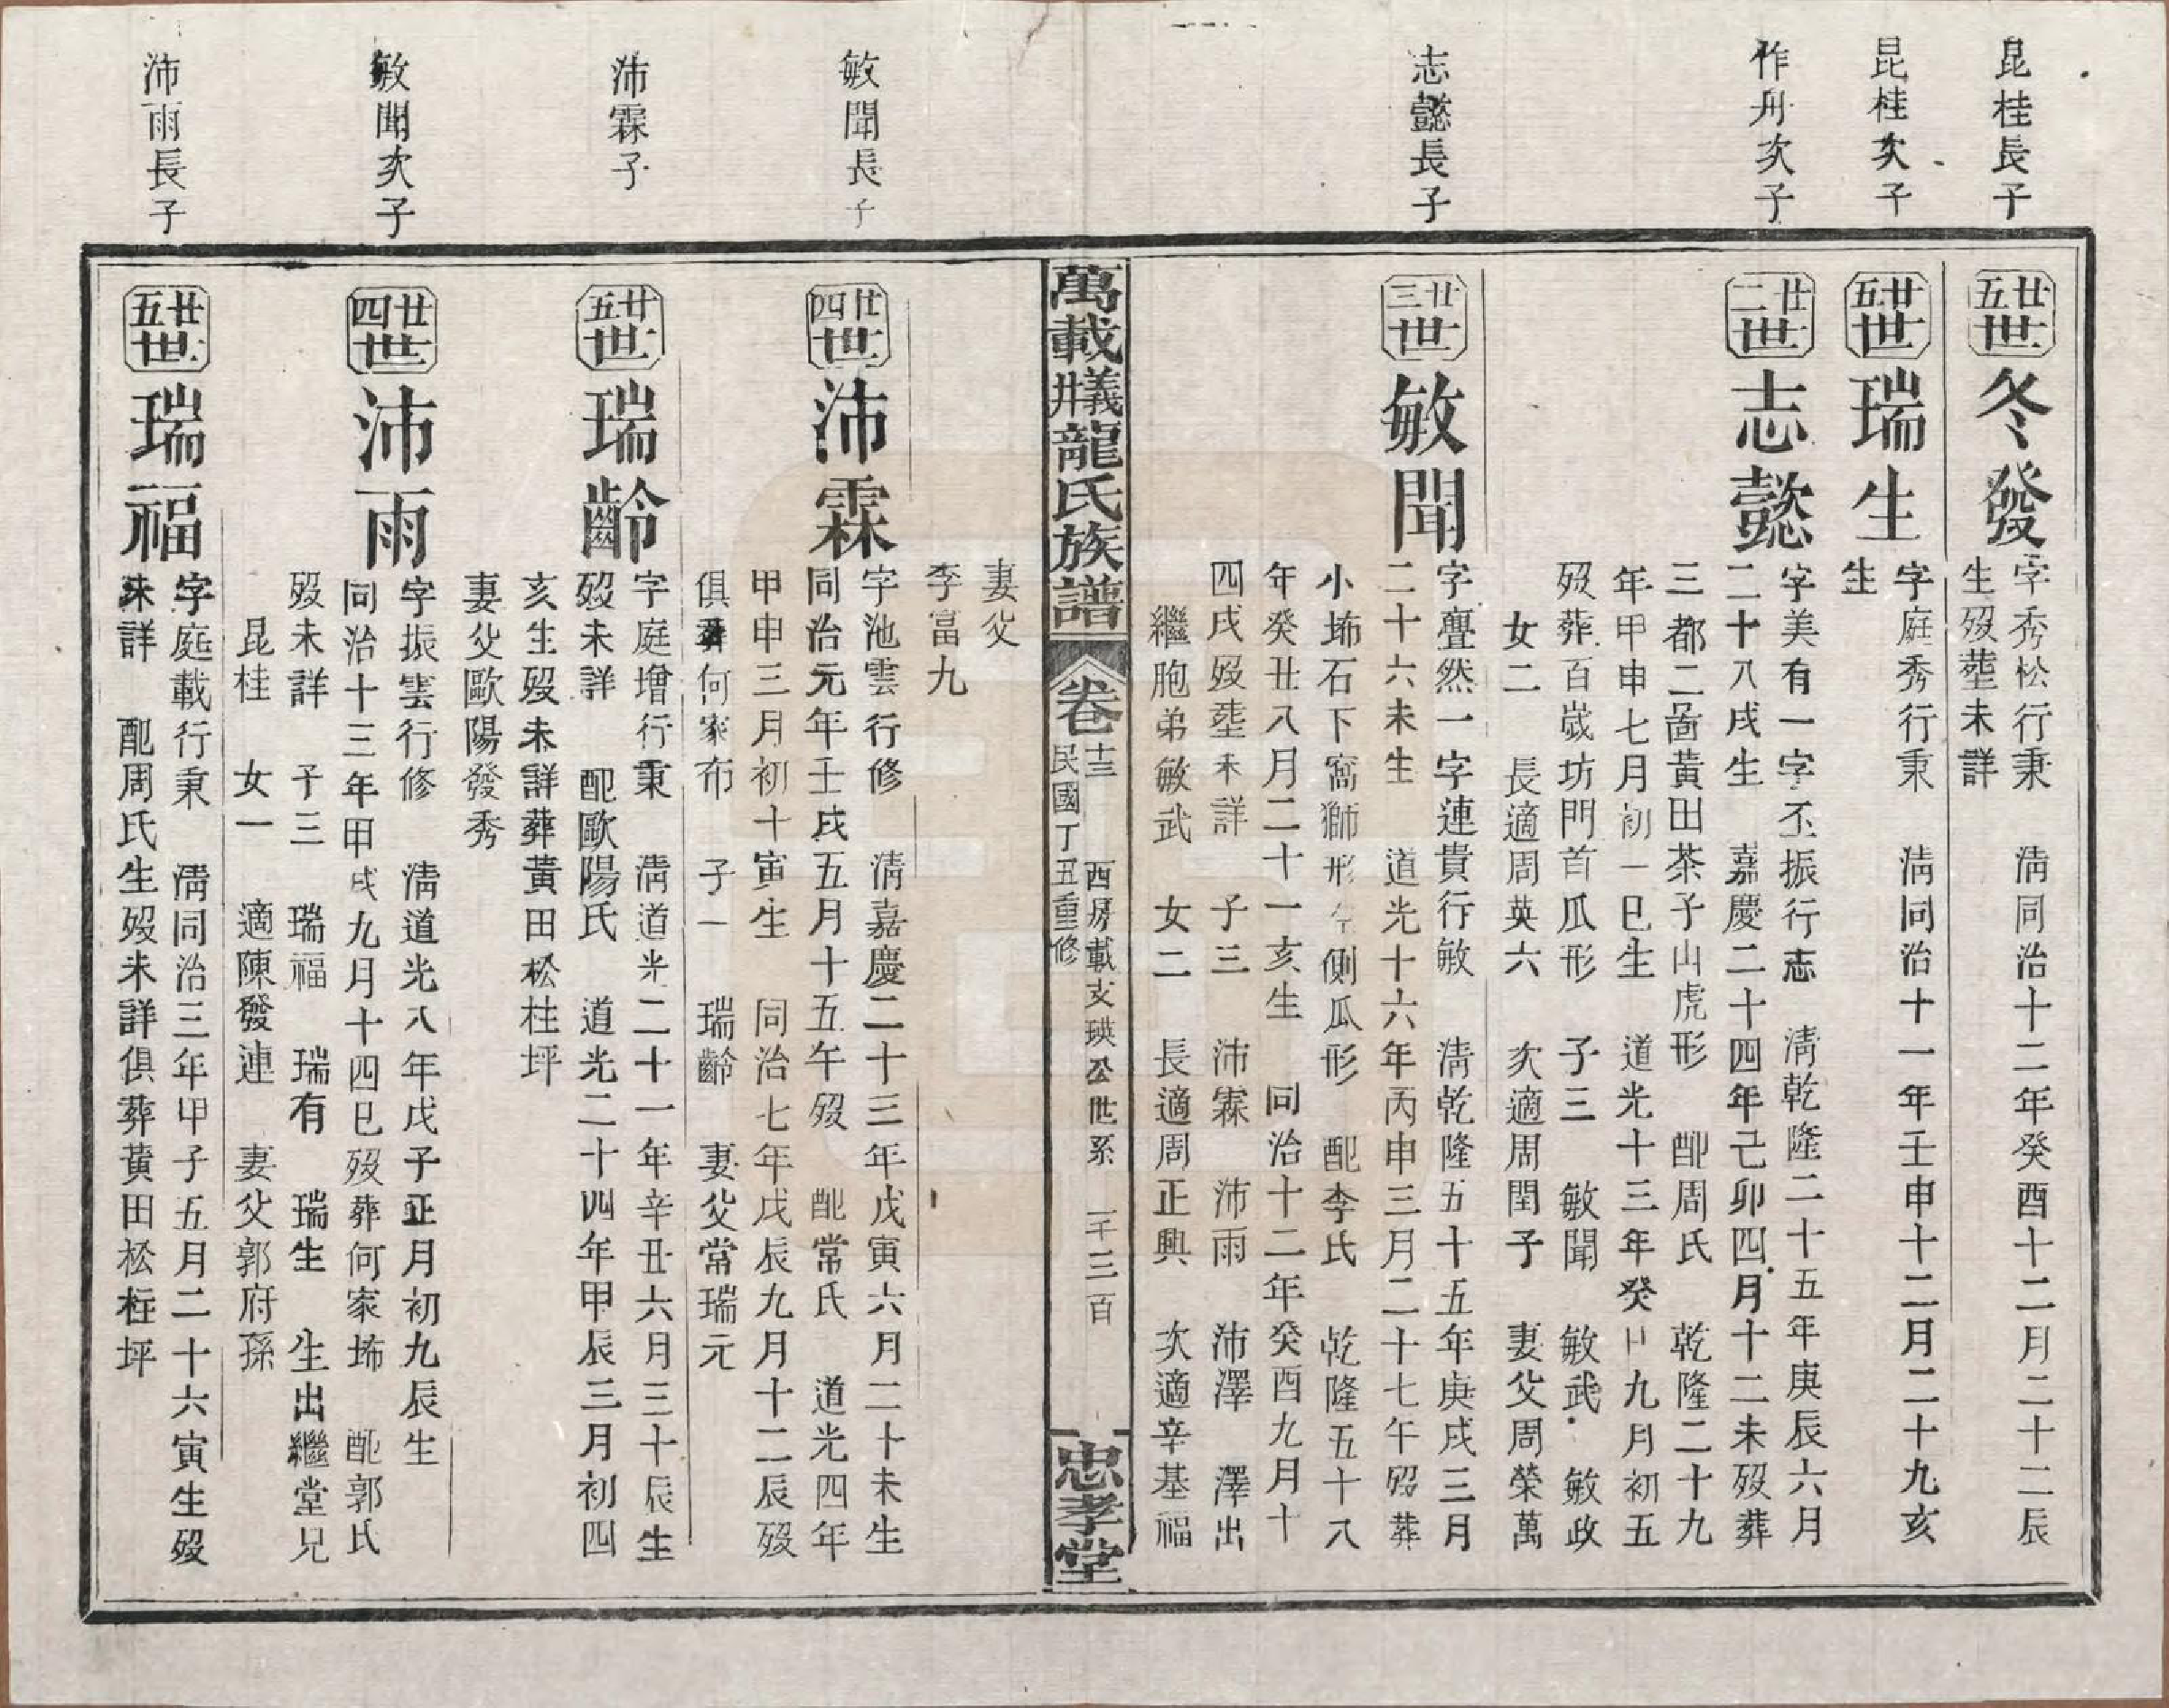 昆桂長子
廿五世
冬發
字秀松行秉 清同治十二年癸酉十二月二十二辰
生歿塟未詳
昆桂次子
廿五世
瑞生
字庭秀行秉 清同治十一年壬申十二月二十九亥
生
作舟次子
廿二世
志懿
字美有一字丕振行志 清乾隆二十五年庚辰六月
二十八戌生 嘉慶二十四年己卯四月十二未歿葬
三都二啚黃田茶子山虎形 配周氏 乾隆二十九
年甲申七月初一巳生 道光十三年癸巳九月初五
歿葬百嵗坊門首瓜形 子三 敏聞 敏武 敏政
女二 長適周英六 次適周閏子 妻父周榮萬
志懿長子
廿三世
敏聞
字亹然一字連貴行敏 清乾隆五十五年庚戌三月
二十六未生 道光十六年丙申三月二十七午歿葬
小㘵石下窩獅形左側瓜形 配李氏 乾隆五十八
年癸丑八月二十一亥生 同治十二年癸酉九月十
四戌歿塟未詳 子三 沛霖 沛雨 沛澤 澤出
繼胞弟敏武 女二 長適周正興 次適辛基福
萬載義井龍氏族譜
卷十三
民國丁丑重修
西房載支瑛公世系
一千三百
忠孝堂
妻父
李富九
敏聞長子
廿四世
沛霖
字池雲行修 清嘉慶二十三年戊寅六月二十未生
同治元年壬戌五月十五午歿 配常氏 道光四年
甲申三月初十寅生 同治七年戊辰九月十二辰歿
俱葬何家布 子一 瑞齡 妻父常瑞元
沛霖子
廿五世
瑞齡
字庭增行秉 清道光二十一年辛丑六月三十辰生
歿未詳 配歐陽氏 道光二十四年甲辰三月初四
亥生歿未詳葬黃田松柱坪
妻父歐陽發秀
敏聞次子
廿四世
沛雨
字振雲行修 清道光八年戊子正月初九辰生
同治十三年甲戌九月十四巳歿葬何家㘵 配郭氏
歿未詳 子三 瑞福 瑞有 瑞生 生出繼堂兄
昆桂 女一 適陳發連 妻父郭府孫
沛雨長子
廿五世
瑞福
字庭載行秉 清同治三年甲子五月二十六寅生歿
未詳 配周氏生歿未詳俱葬黃田松柱坪